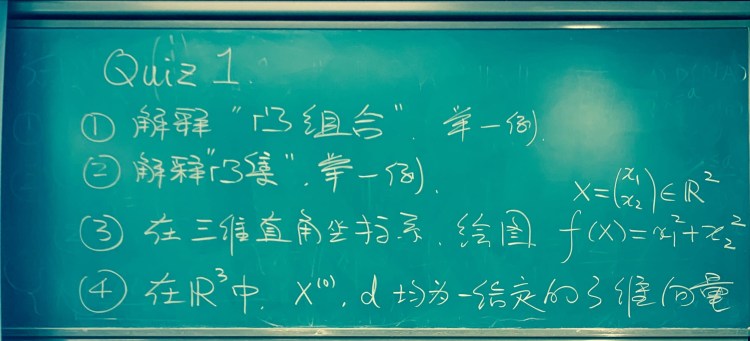 Quiz 1.
① 解释“凸组合”. 举一例.
② 解释“凸集”. 举一例.
X=(x₁ x₂)∈ℝ²
③ 在三维直角坐标系. 绘图 f(X)=x₁²+x₂²
④ 在ℝ³中. X⁽⁰⁾. d 均为一给定的3维向量